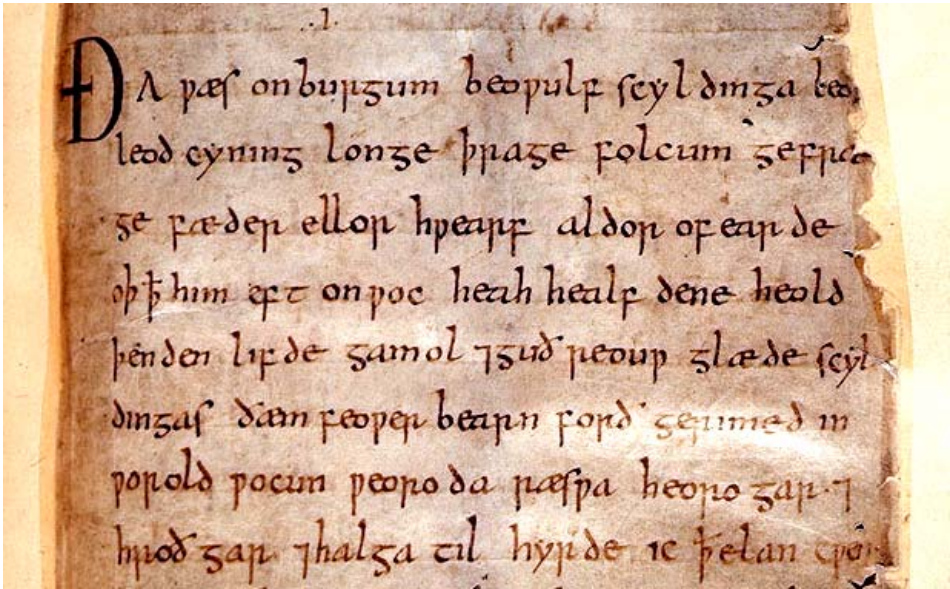 .I.
ÐA ƿæs on burgum beoƿulf scyldinga beoƿ
leod cyning longe þrage folcum gefræ
ge fæder ellor hƿearf aldor of earde
oþ ꝥ him eft onƿoc heah healf dene heold
þenden lifde gamol ⁊ guð reouƿ glæde scyl
dingas ðæm feoƿer bearn forð gerimed in
ƿorold ƿocun ƿeoroda ræsƿa heoro gar. ⁊
hroð gar ⁊ halga til hyrde ic ꝥ elan cƿen